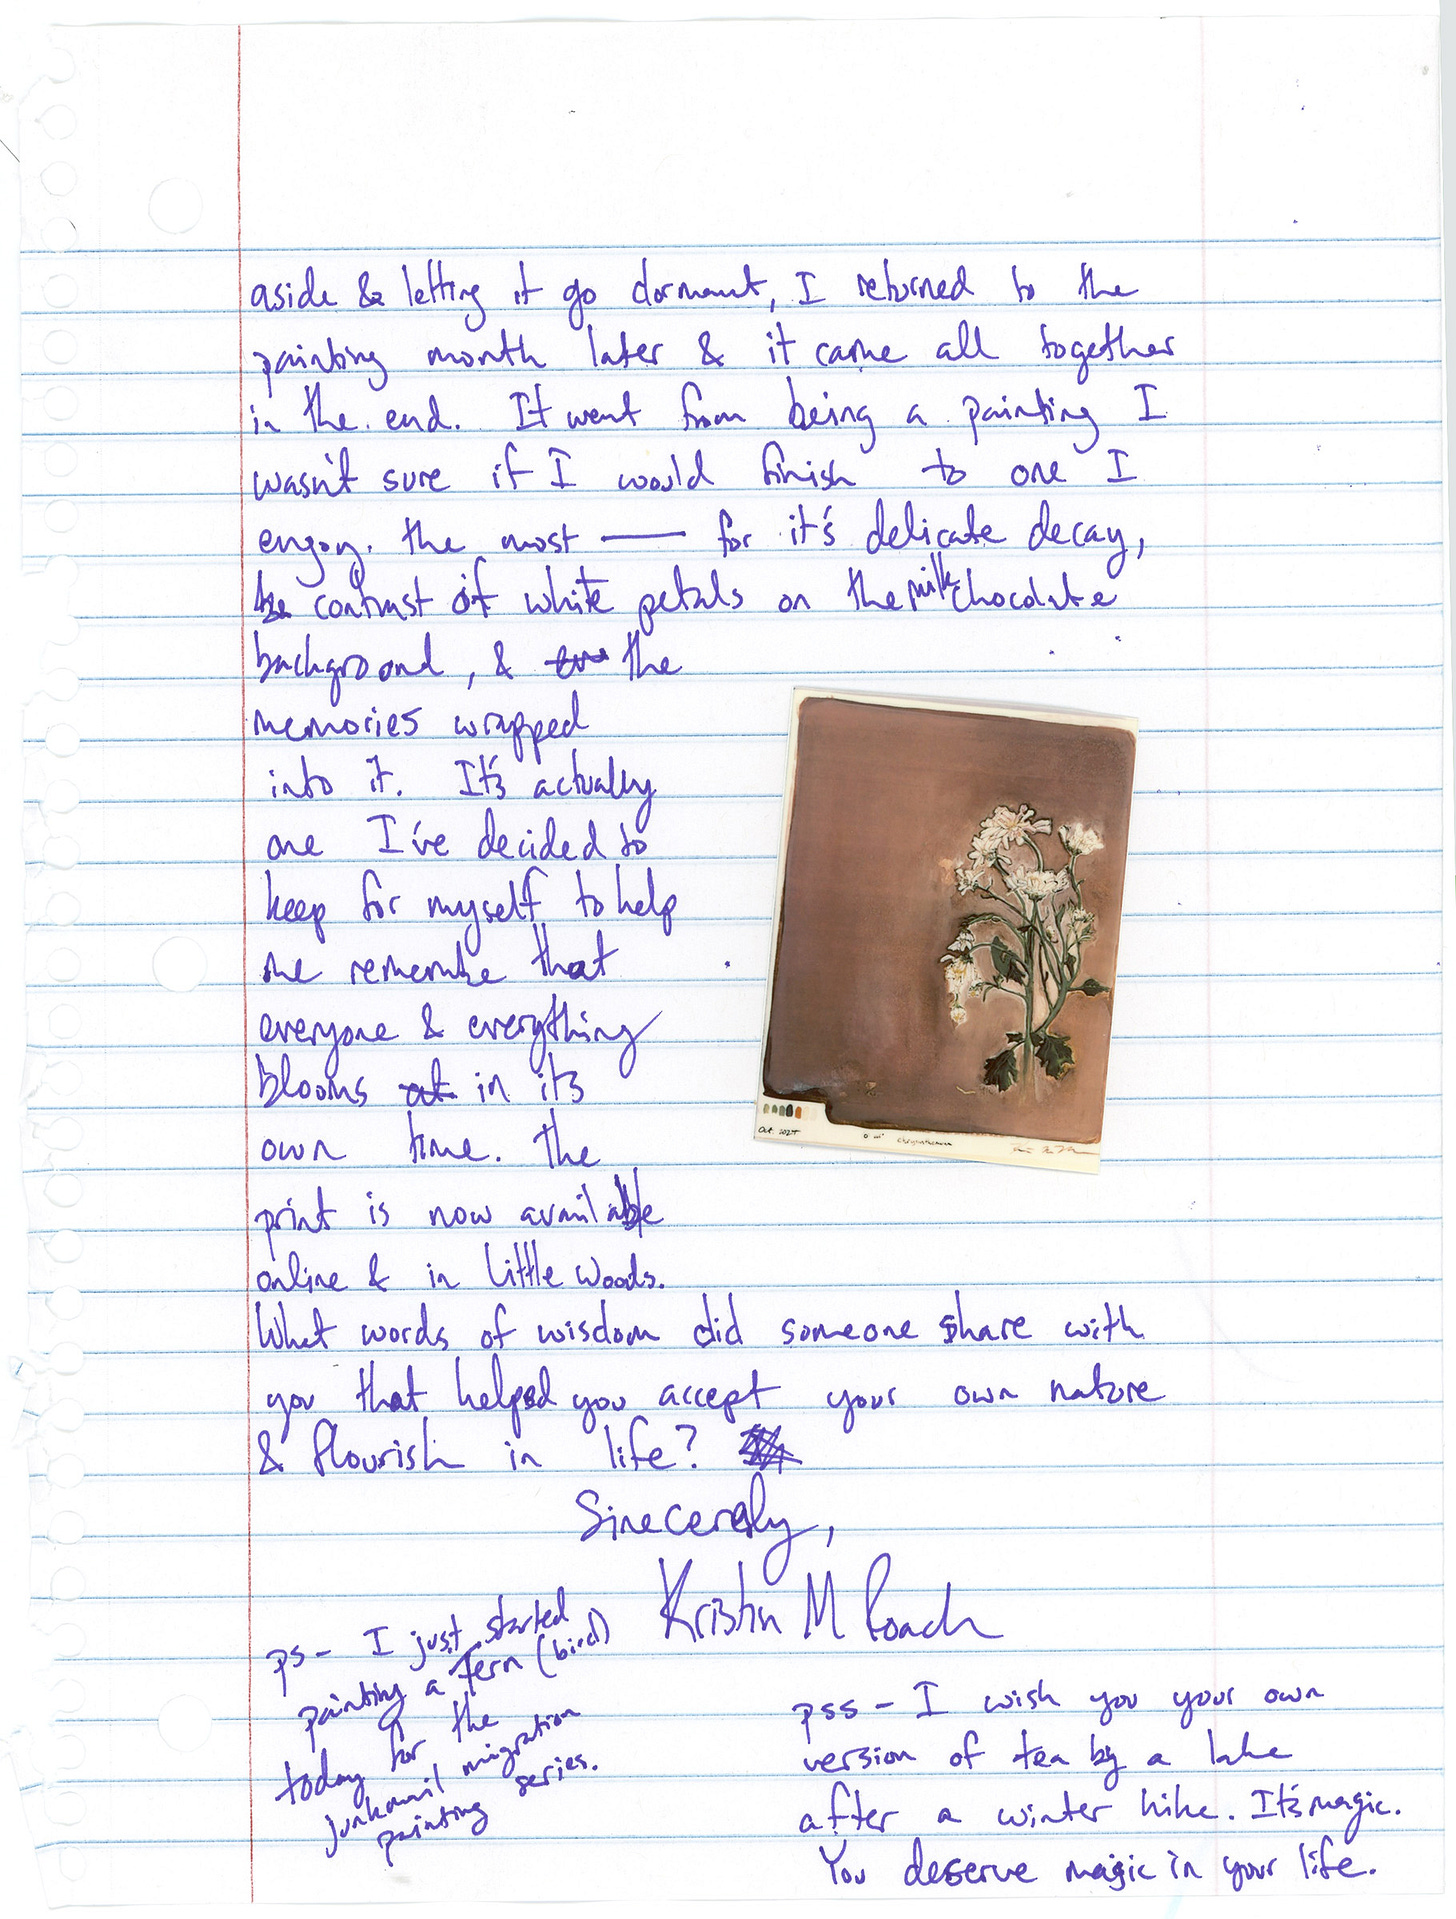 aside & letting it go dormant, I returned to the
painting month later & it came all together
in the end. It went from being a painting I
wasn't sure if I would finish to one I
enjoy the most — for it's delicate decay,
contrast of white petals on the milk chocolate
background, & the
memories wrapped
into it. It's actually
one I've decided to
keep for myself to help
me remember that
everyone & everything
blooms in its
own time. The
print is now available
online & in Little Woods.
What words of wisdom did someone share with
you that helped you accept your own nature
& flourish in life?
Sincerely,
Kristin M Roach
ps- I just started
painting a Tern (bird)
today for the
junkmail migration
painting series.
pss - I wish you your own
version of tea by a lake
after a winter hike. It's magic.
You deserve magic in your life.
Oct. 2024
chrysanthemum